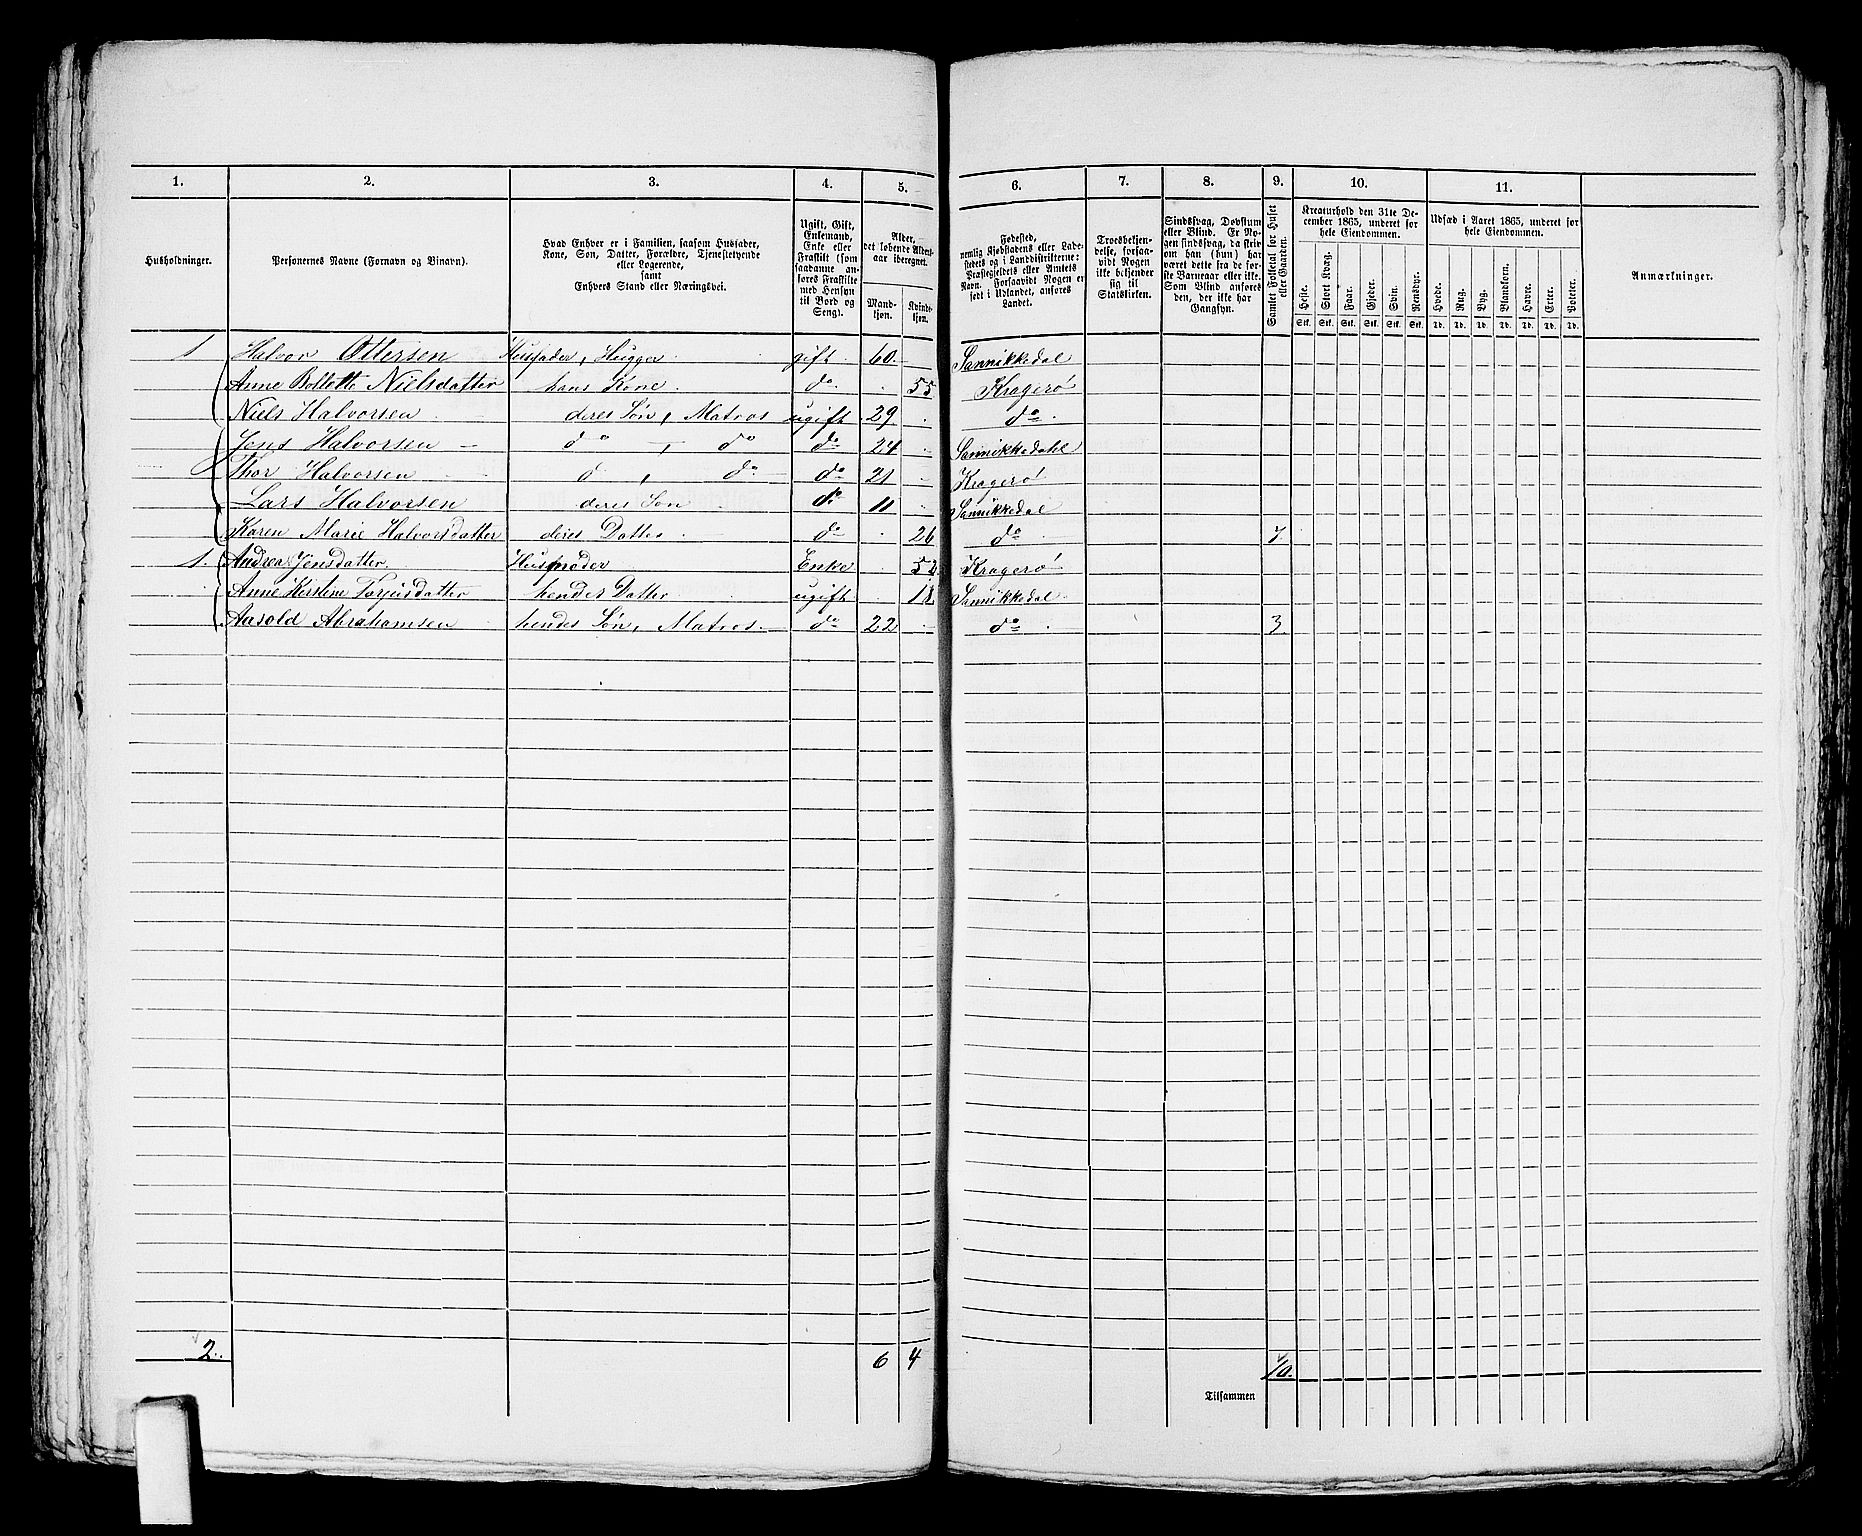 1. 2. 3. 4. 5. 6. 7. 8. 9. 10. 11.
Husholdninger.
Personernes Navne (Fornavn og Binavn).
Hvad Enhver er i Familien, saasom Husfader,
Kone, Søn, Datter, Forældre, Tjenestetyende
eller Logerende,
samt
Enhvers Stand eller Næringsvei.
Ugift, Gift,
Enkemand,
Enke eller
Fraskilt (som
saadanne an-
føres Fraskilte
med Hensyn
til Bord og
Seng).
Alder,
det løbende Alders-
aar iberegnet.
Mand-
kjøn.
Kvinde-
kjøn.
Fødested,
nemlig Kjøbstadens eller Lade-
stedets og i Landdistrikterne:
Præstegjeldets eller Amtets
Navn. Forsaavidt Nogen er
født i Udlandet, anføres
Landet.
Troesbekjen-
delse, forsaa-
vidt Nogen
ikke bekjender
sig til
Statskirken.
Sindssvag, Døvstum
eller Blind. Er No-
gen sindssvag, da skriv
om han (hun) har
været dette fra de før-
ste Barneaar eller ikke.
Som Blind anføres
den, der ikke har
Gangsyn.
Samlet Folketal for Huset
eller Gaarden.
Kreaturhold den 31te De-
cember 1865, underet for
hele Eiendommen.
Heste. Stort Kvæg. Faar. Gjeder. Svin. Rensdyr.
Stk. Stk. Stk. Stk. Stk. Stk.
Udsæd i Aaret 1865, underet for
hele Eiendommen.
Hvede. Rug. Byg. Blandkorn. Havre. Erter. Poteter.
Td. Td. Td. Td. Td. Td. Td.
Anmærkninger.
1 Halvor Ottersen Husfader, Hugger gift 60 Sannikkedal
Anne Bollette Nielsdatter hans Kone do 55 Kragerø
Niels Halvorsen deres Søn, Matros ugift 29 do
Jens Halvorsen do, do do 24 Sannikkedahl
Thor Halvorsen d, do do 21 Kragerø
Lars Halvorsen deres Søn do 11 Sannikkedal
Karen Marie Halvorsdatter deres Datter do 26 do 7
1. Andrea Jensdatter Husmoder Enke 52 Kragerø
Anne Kirstine Torjusdatter hendes Datter ugift 18 Sannikkedal
Aasold Abrahamsen hendes Søn, Matros do 22 do 3
2. 6 4 10.
Tilsammen